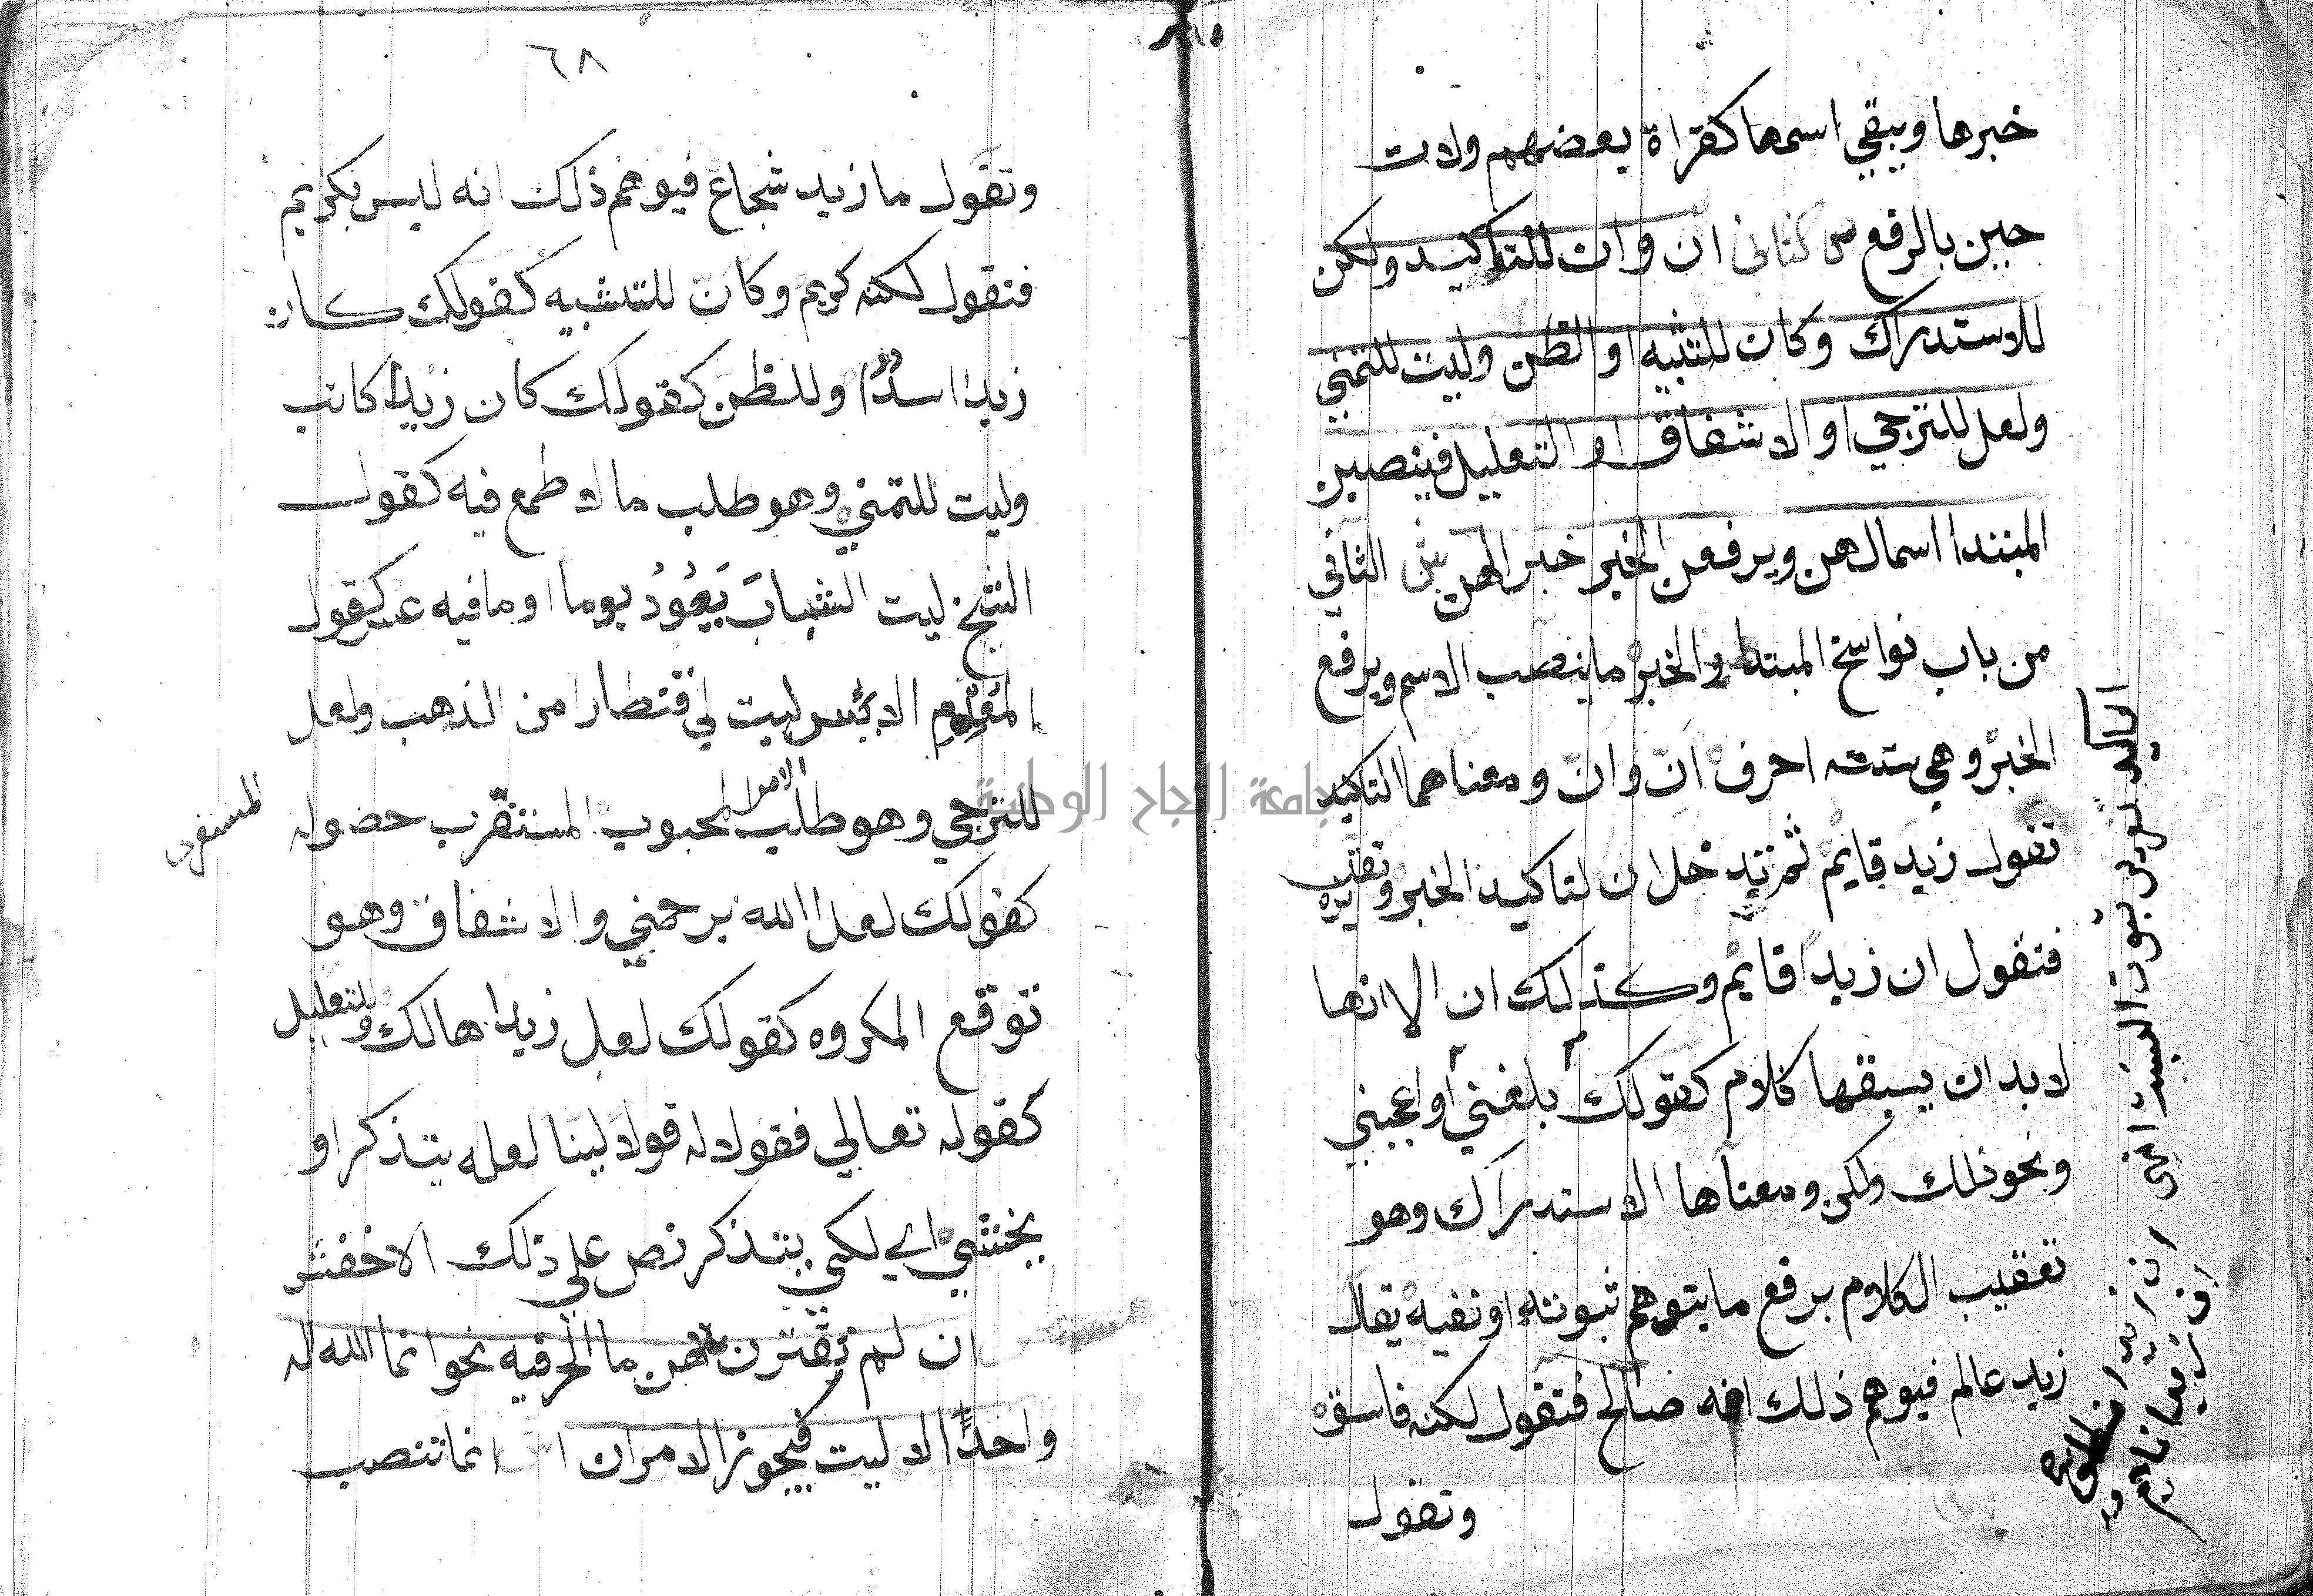 خبرها ويبقي اسمها كقراة بعضهم ولات
حين بالرفع ص الثاني ان وان للتاكيد ولكن
للاستدراك وكان للتشبيه او الظن وليت للتمني
ولعل للترجي او الاشفاق او التعليل فينصبن
المبتدا اسما لهن ويرفعن الخبر خبرا لهن ش الثاني
من باب نواسخ المبتدا والخبر ما ينصب الاسم ويرفع
الخبر وهي ستة احرف انّ وانّ ومعناهما التاكيد
تقول زيد قايم ثم تدخل ان لتاكيد الخبر وتقريره
فتقول ان زيدا قايم وكذلك ان الا انها
لا بد ان يسبقها كلام كقولك بلغني او اعجبني
ونحو ذلك ولكن ومعناها الاستدراك وهو
تعقيب الكلام برفع ما يتوهم ثبوته او نفيه يقال
زيد عالم فيوهم ذلك انه صالح فتقول لكنه فاسق
وتقول
جامعة النجاح الوطنية
٦٨
وتقول ما زيد شجاع فيوهم ذلك انه ليس بكريم
فتقول لكنه كريم وكانّ للتشبيه كقولك كان
زيدا اسدٌ وللظن كقولك كان زيدا كاتب
وليت للتمني وهو طلب ما لا طمع فيه كقول
الشيخ ليت الشبابَ يَعُودُ يوما او ما فيه عسر كقول
المعدم الايس ليت لي قنطارا من الذهب ولعل
للترجي وهو طلب الامر المحبوب المستقرب حصوله
كقولك لعل الله يرحمني والاشفاق وهو
توقع المكروه كقولك لعل زيدا هالك وللتعليل
كقوله تعالي فقولا له قولا لينا لعله يتذكر او
يخشي اي لكي يتذكر نص علي ذلك الاخفش
ان لم تقترن بهن ما الحرفيه نحو انما الله اله
واحدٌ الا ليت فيجوز الامران انما تنصب